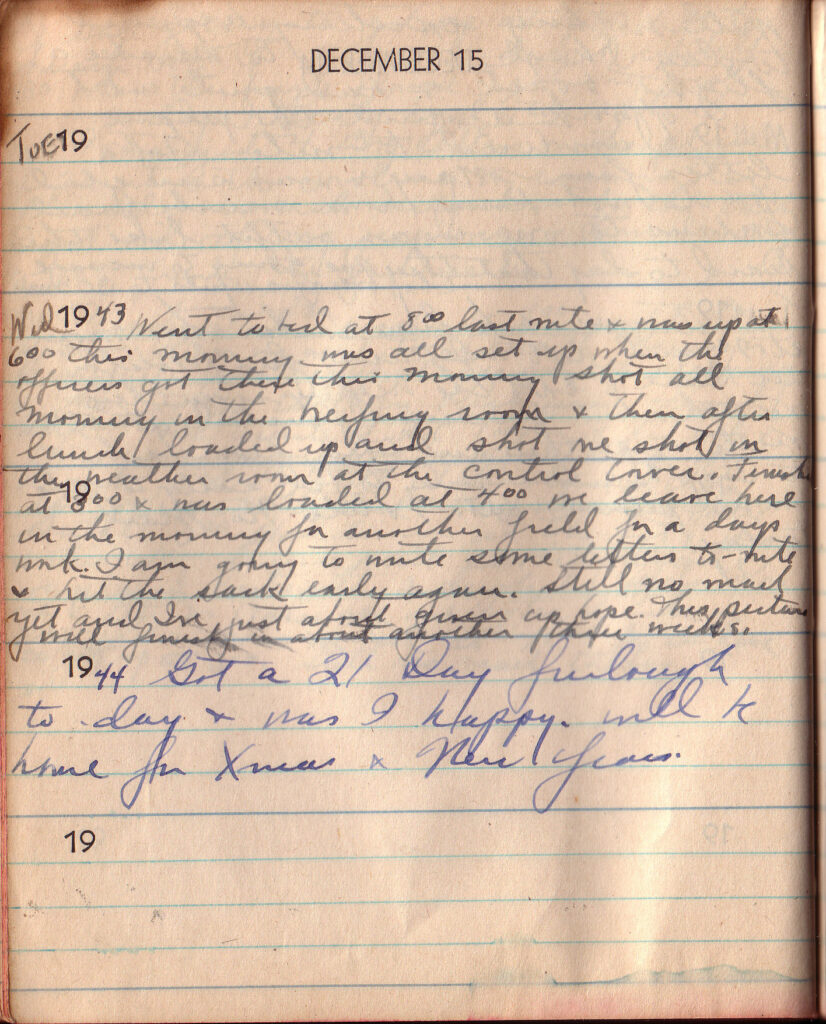 DECEMBER 15
Tue 19
Wed 19 43 Went to bed at 8⁰⁰ last nite & was up at
6⁰⁰ this morning was all set up when the
officers got there this morning shot all
morning in the breifing room & then after
lunch loaded up and shot one shot in
the weather room at the control tower. Finish
19
at 3⁰⁰ & was loaded at 4⁰⁰ we leave here
in the morning for another field for a days
work. I am going to write some letters to-nite
& hit the sack early again. Still no mail
yet and I've just about given up hope. This picture
will finish in about another three weeks.
19 44 Got a 21 Day furlough
to day & was I happy. will be
home for Xmas & New Years.
19